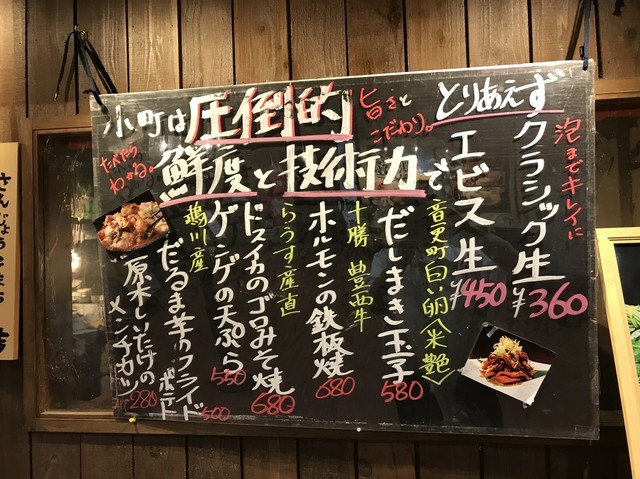 小町は圧倒的
旨さと
こだわり。
たべたら
わかる。
鮮度と技術力で
とりあえず
泡までキレイに
クラシック生 ¥360
エビス生 ¥450
音更町白い卵〈米艶〉
だしまき玉子 580
十勝 豊西牛
ホルモンの鉄板焼 680
らうす産直
ドスイカのゴロみそ焼 680
ゲンゲの天ぷら 550
鵡川産
だるま芋のフライドポテト 500
原木しいたけの
メンチカツ
280